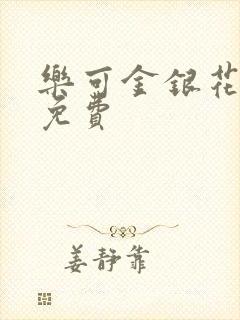 樂可金銀花
免費
姜靜靠